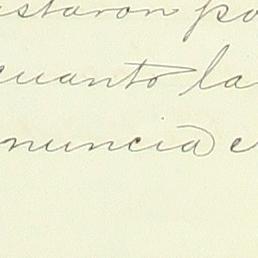 staron po
cuanto la
nuncia e